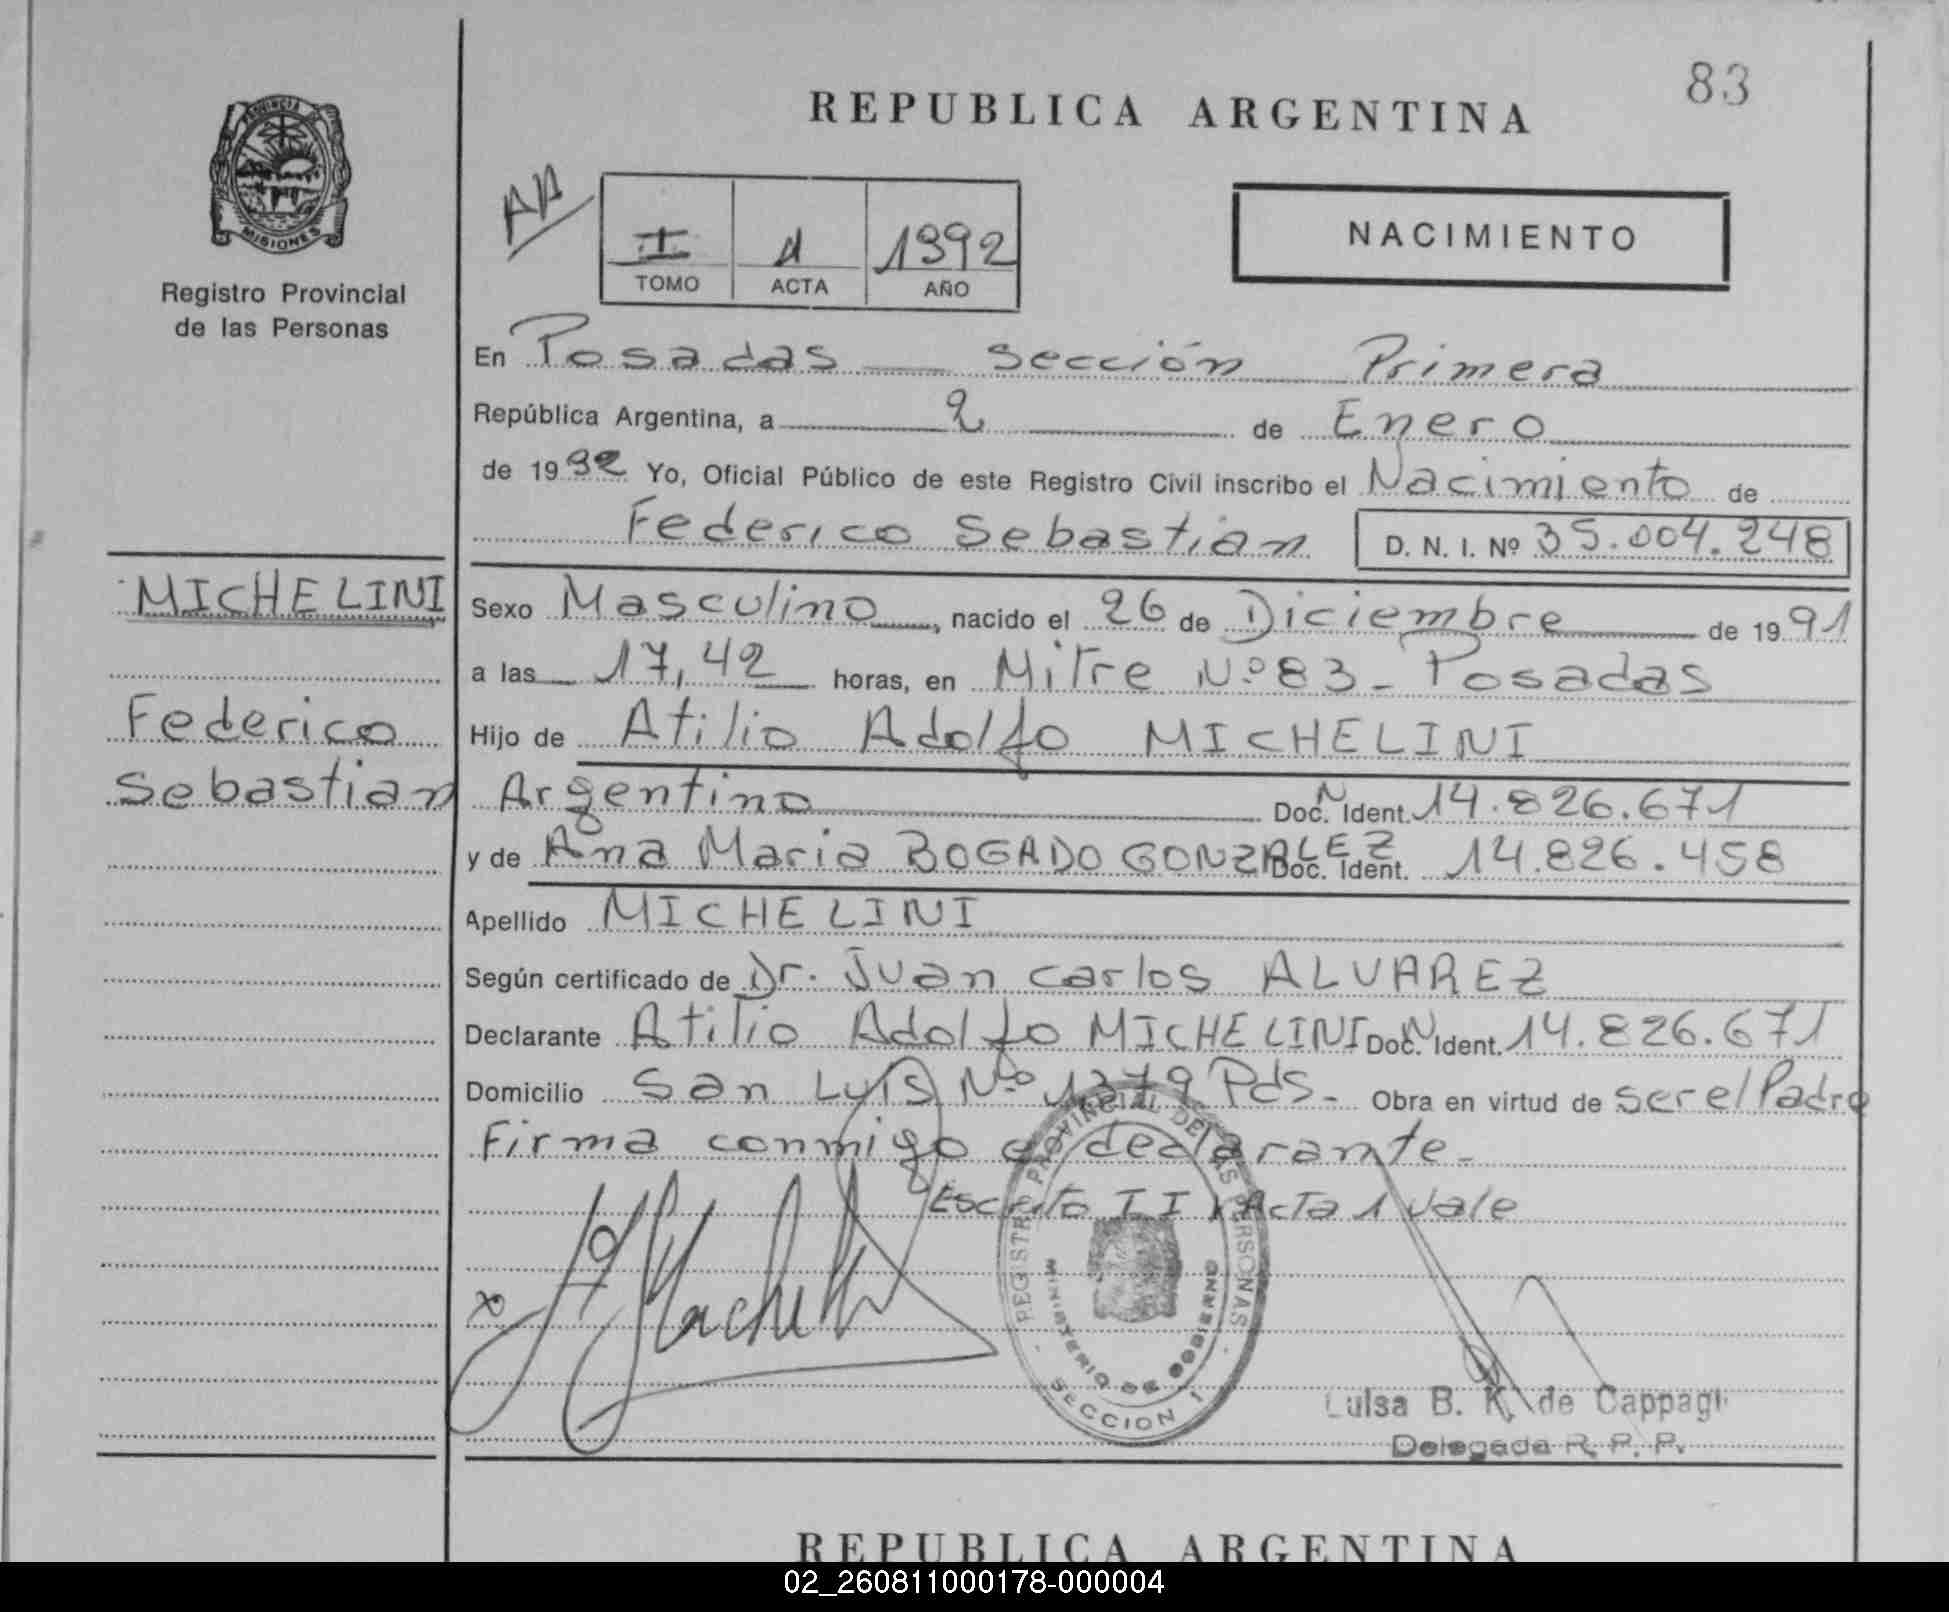 83
REPUBLICA ARGENTINA
PROVINCIA DE
MISIONES
Registro Provincial
de las Personas
AA
I 1 1992
TOMO ACTA AÑO
NACIMIENTO
En Posadas — sección Primera
República Argentina, a 2 de Enero
de 1992 Yo, Oficial Público de este Registro Civil inscribo el Nacimiento de
Federico Sebastian D. N. I. Nº 35.004.248
MICHELINI
Federico
Sebastian
Sexo Masculino, nacido el 26 de Diciembre de 1991
a las 17,42 horas, en Mitre Nº 83 - Posadas
Hijo de Atilio Adolfo MICHELINI
Argentino Doc. N Ident. 14.826.671
y de Ana Maria BOGADO GONZALEZ Doc. Ident. 14.826.458
Apellido MICHELINI
Según certificado de Dr. Juan Carlos ALVAREZ
Declarante Atilio Adolfo MICHELINI Doc. N Ident. 14.826.671
Domicilio San Luis Nº 1379 Pds. Obra en virtud de ser el Padre
Firma conmigo el declarante.
Escrito I I Acta 1 Vale
REGISTRO PROVINCIAL DE LAS PERSONAS
MINISTERIO DE GOBIERNO
SECCION 1
Luisa B. K. de
Delegada R. P. P.
REPUBLICA ARGENTINA
02_260811000178-000004